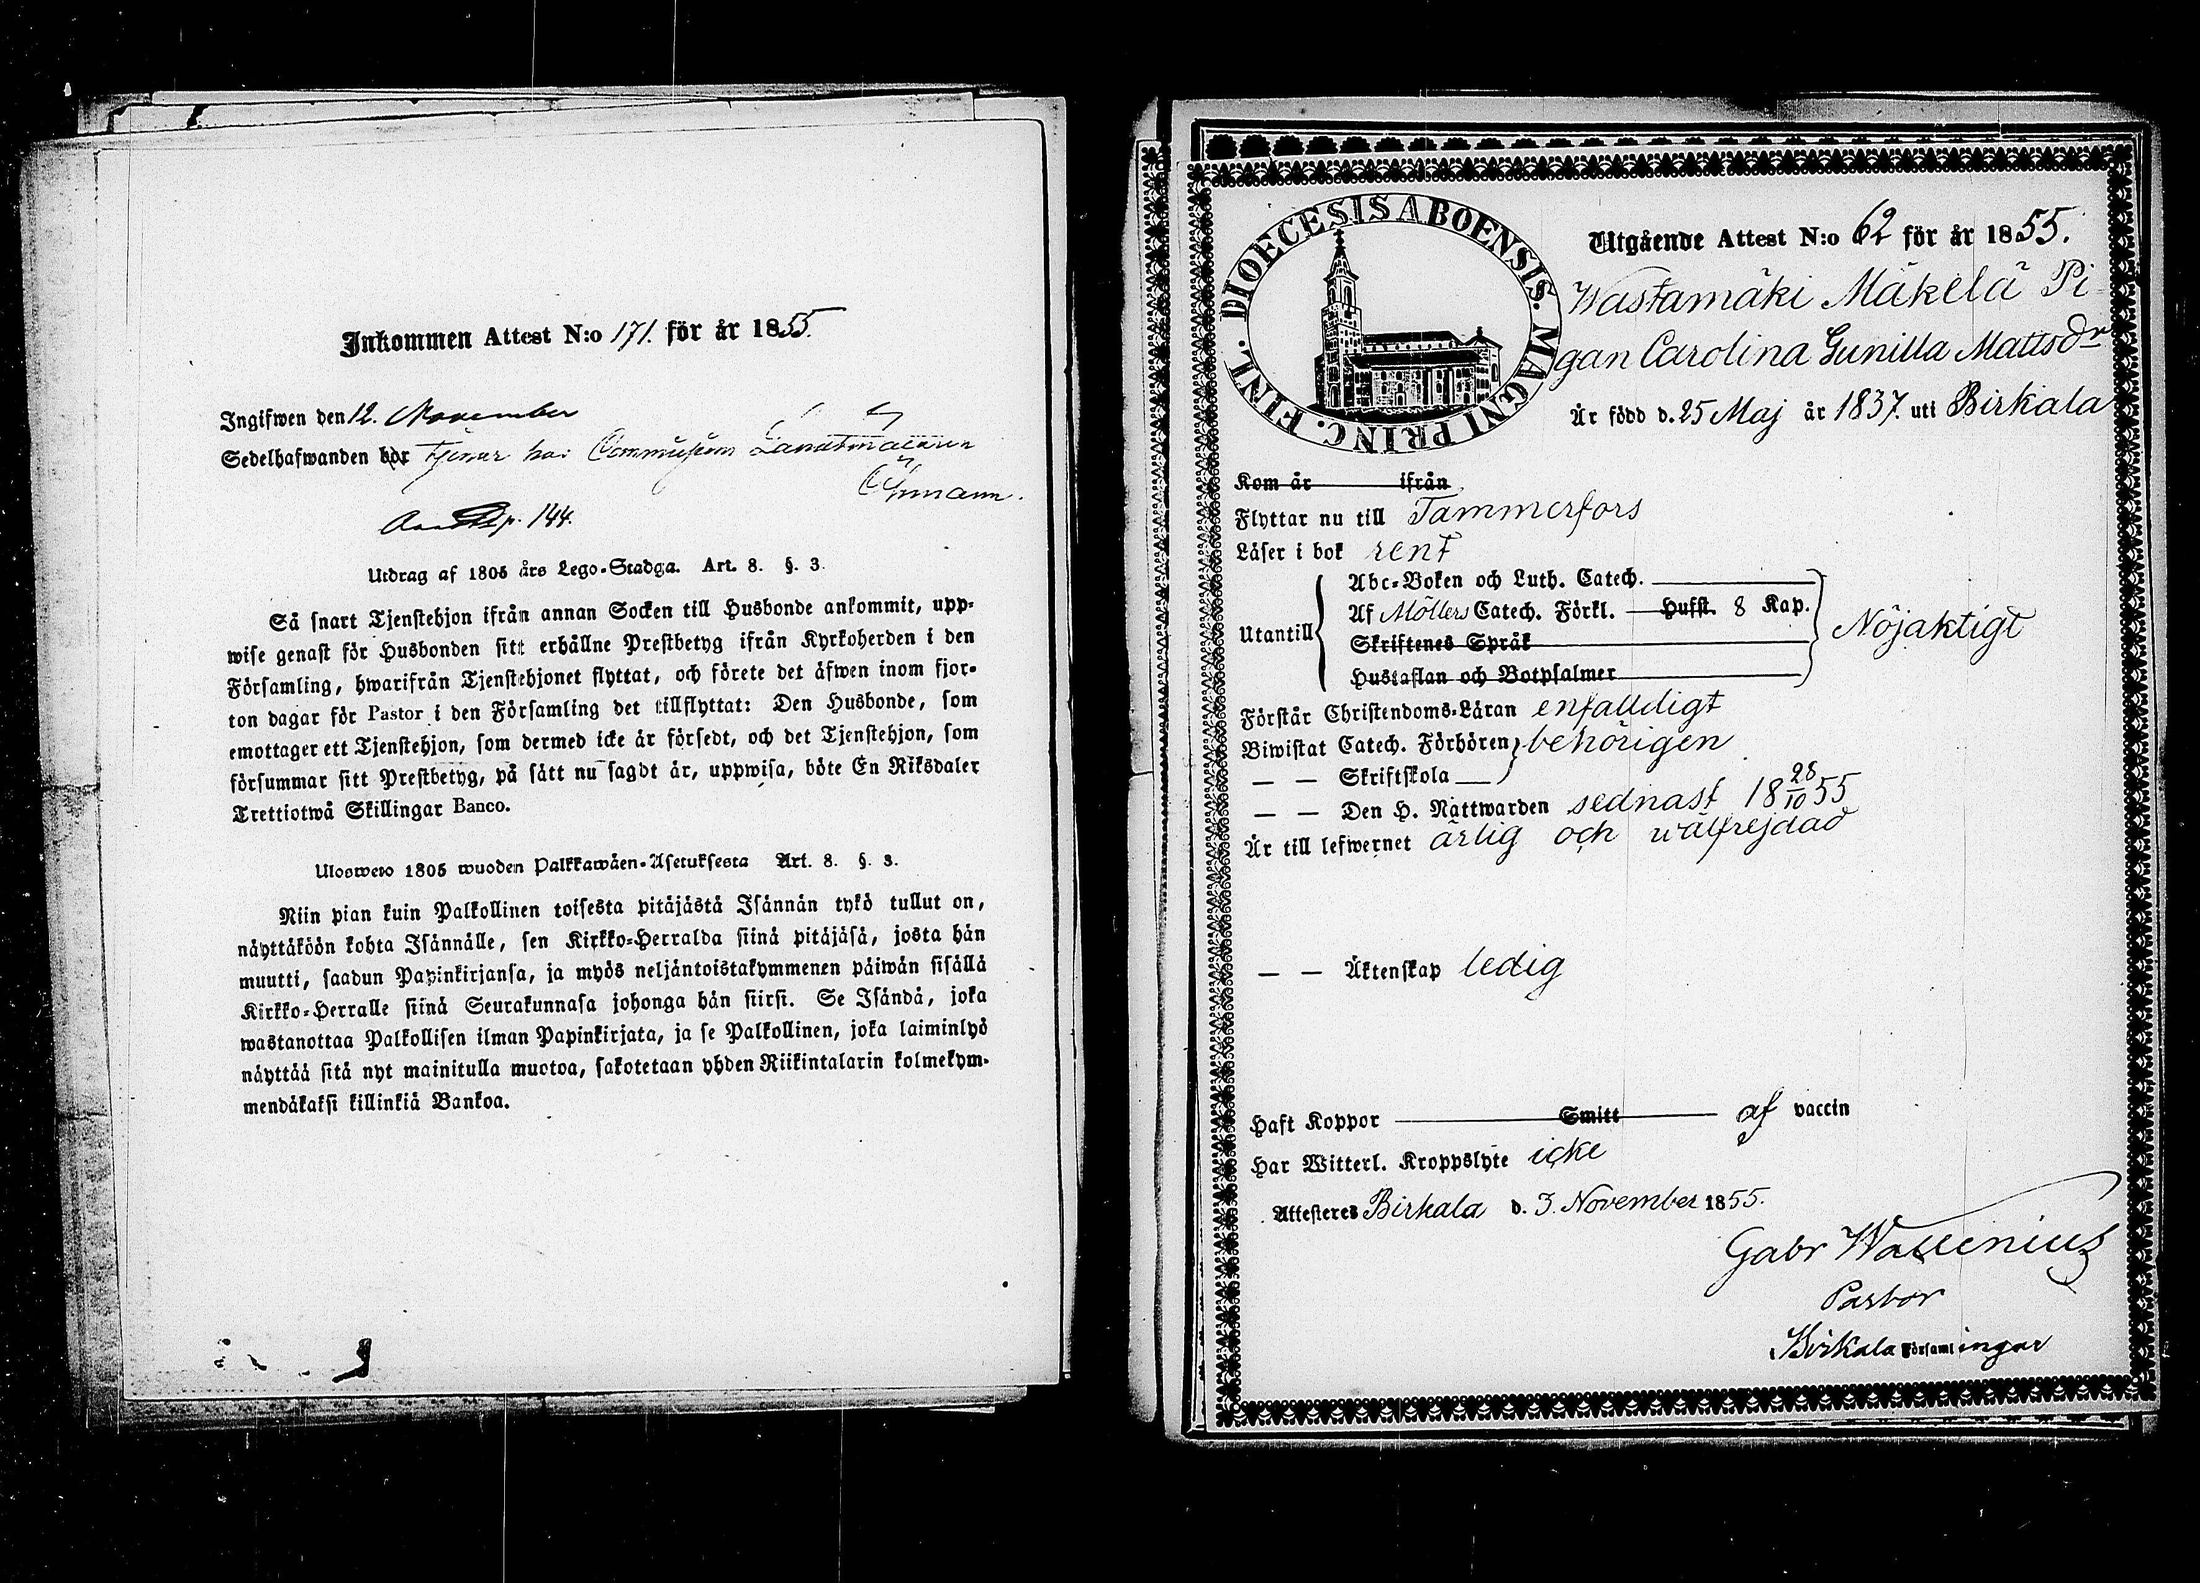 Inkommen Attest N:o 171. för år 1855.
Ingifwen den 12. November
Sedelhafwanden bor tjenar hos Commissions Landtmätaren
Öhmann.
p. 144.
Utdrag af 1805 års Lego-Stadga. Art. 8. §. 3.
Så snart Tjenstehjon ifrån annan Socken till Husbonde ankommit, upp-
wise genast för Husbonden sitt erhållne Prestbetyg ifrån Kyrkoherden i den
Församling, hwarifrån Tjenstehjonet flyttat, och förete det äfwen inom fjor-
ton dagar för Pastor i den Församling det tillflyttat: Den Husbonde, som
emottager ett Tjenstehjon, som dermed icke är försedt, och det Tjenstehjon, som
försummar sitt Prestbetyg, på sätt nu sagdt är, uppwisa, böte En Riksdaler
Trettiotwå Skillingar Banco.
Ulosweto 1805 wuoden Palkkawäen-Asetuksesta Art. 8. §. 3.
Niin pian kuin Palkollinen toisesta pitäjästä Isännän tykö tullut on,
näyttäköön kohta Isännälle, sen Kirkko-Herralda siinä pitäjäsä, josta hän
muutti, saadun Papinkirjansa, ja myös neljäntoistakymmenen päiwän sisällä
Kirkko-Herralle siinä Seurakunnasa johonga hän siirsi. Se Isändä, joka
wastanottaa Palkollisen ilman Papinkirjata, ja se Palkollinen, joka laiminlyö
näyttää sitä nyt mainitulla muotoa, sakotetaan yhden Riikintalarin kolmekym-
mendäkaksi killinkiä Bankoa.
DIOECESIS ABOENSIS. MAGNI PRINC. FINL.
Utgående Attest N:o 62 för år 1855.
Wastamäki Mäkelä Pi-
gan Carolina Gunilla Mattsdr
Är född d. 25 Maj år 1837. uti Birkala
Kom år ifrån
Flyttar nu till Tammerfors
Läser i bok rent
Abc-Boken och Luth. Catech.
Utantill Af Möllers Catech. Förkl. Husst. 8 Kap. Nöjaktigt
Skriftenes Språk
Hustaflan och Botpsalmer
Förstår Christendoms-Läran enfalldigt
Biwistat Catech. Förhören behörigen
— — Skriftskola
— — Den H. Nattwarden sednast 18 28/10 55
Är till lefwernet ärlig och wälfrejdad
— — Äktenskap ledig
Haft Koppor Smitt af vaccin
Har Witterl. Kroppslyte icke
Attesteres Birkala d. 3. November 1855.
Gabr Wallenius
Pastor
Birkala Församlingar